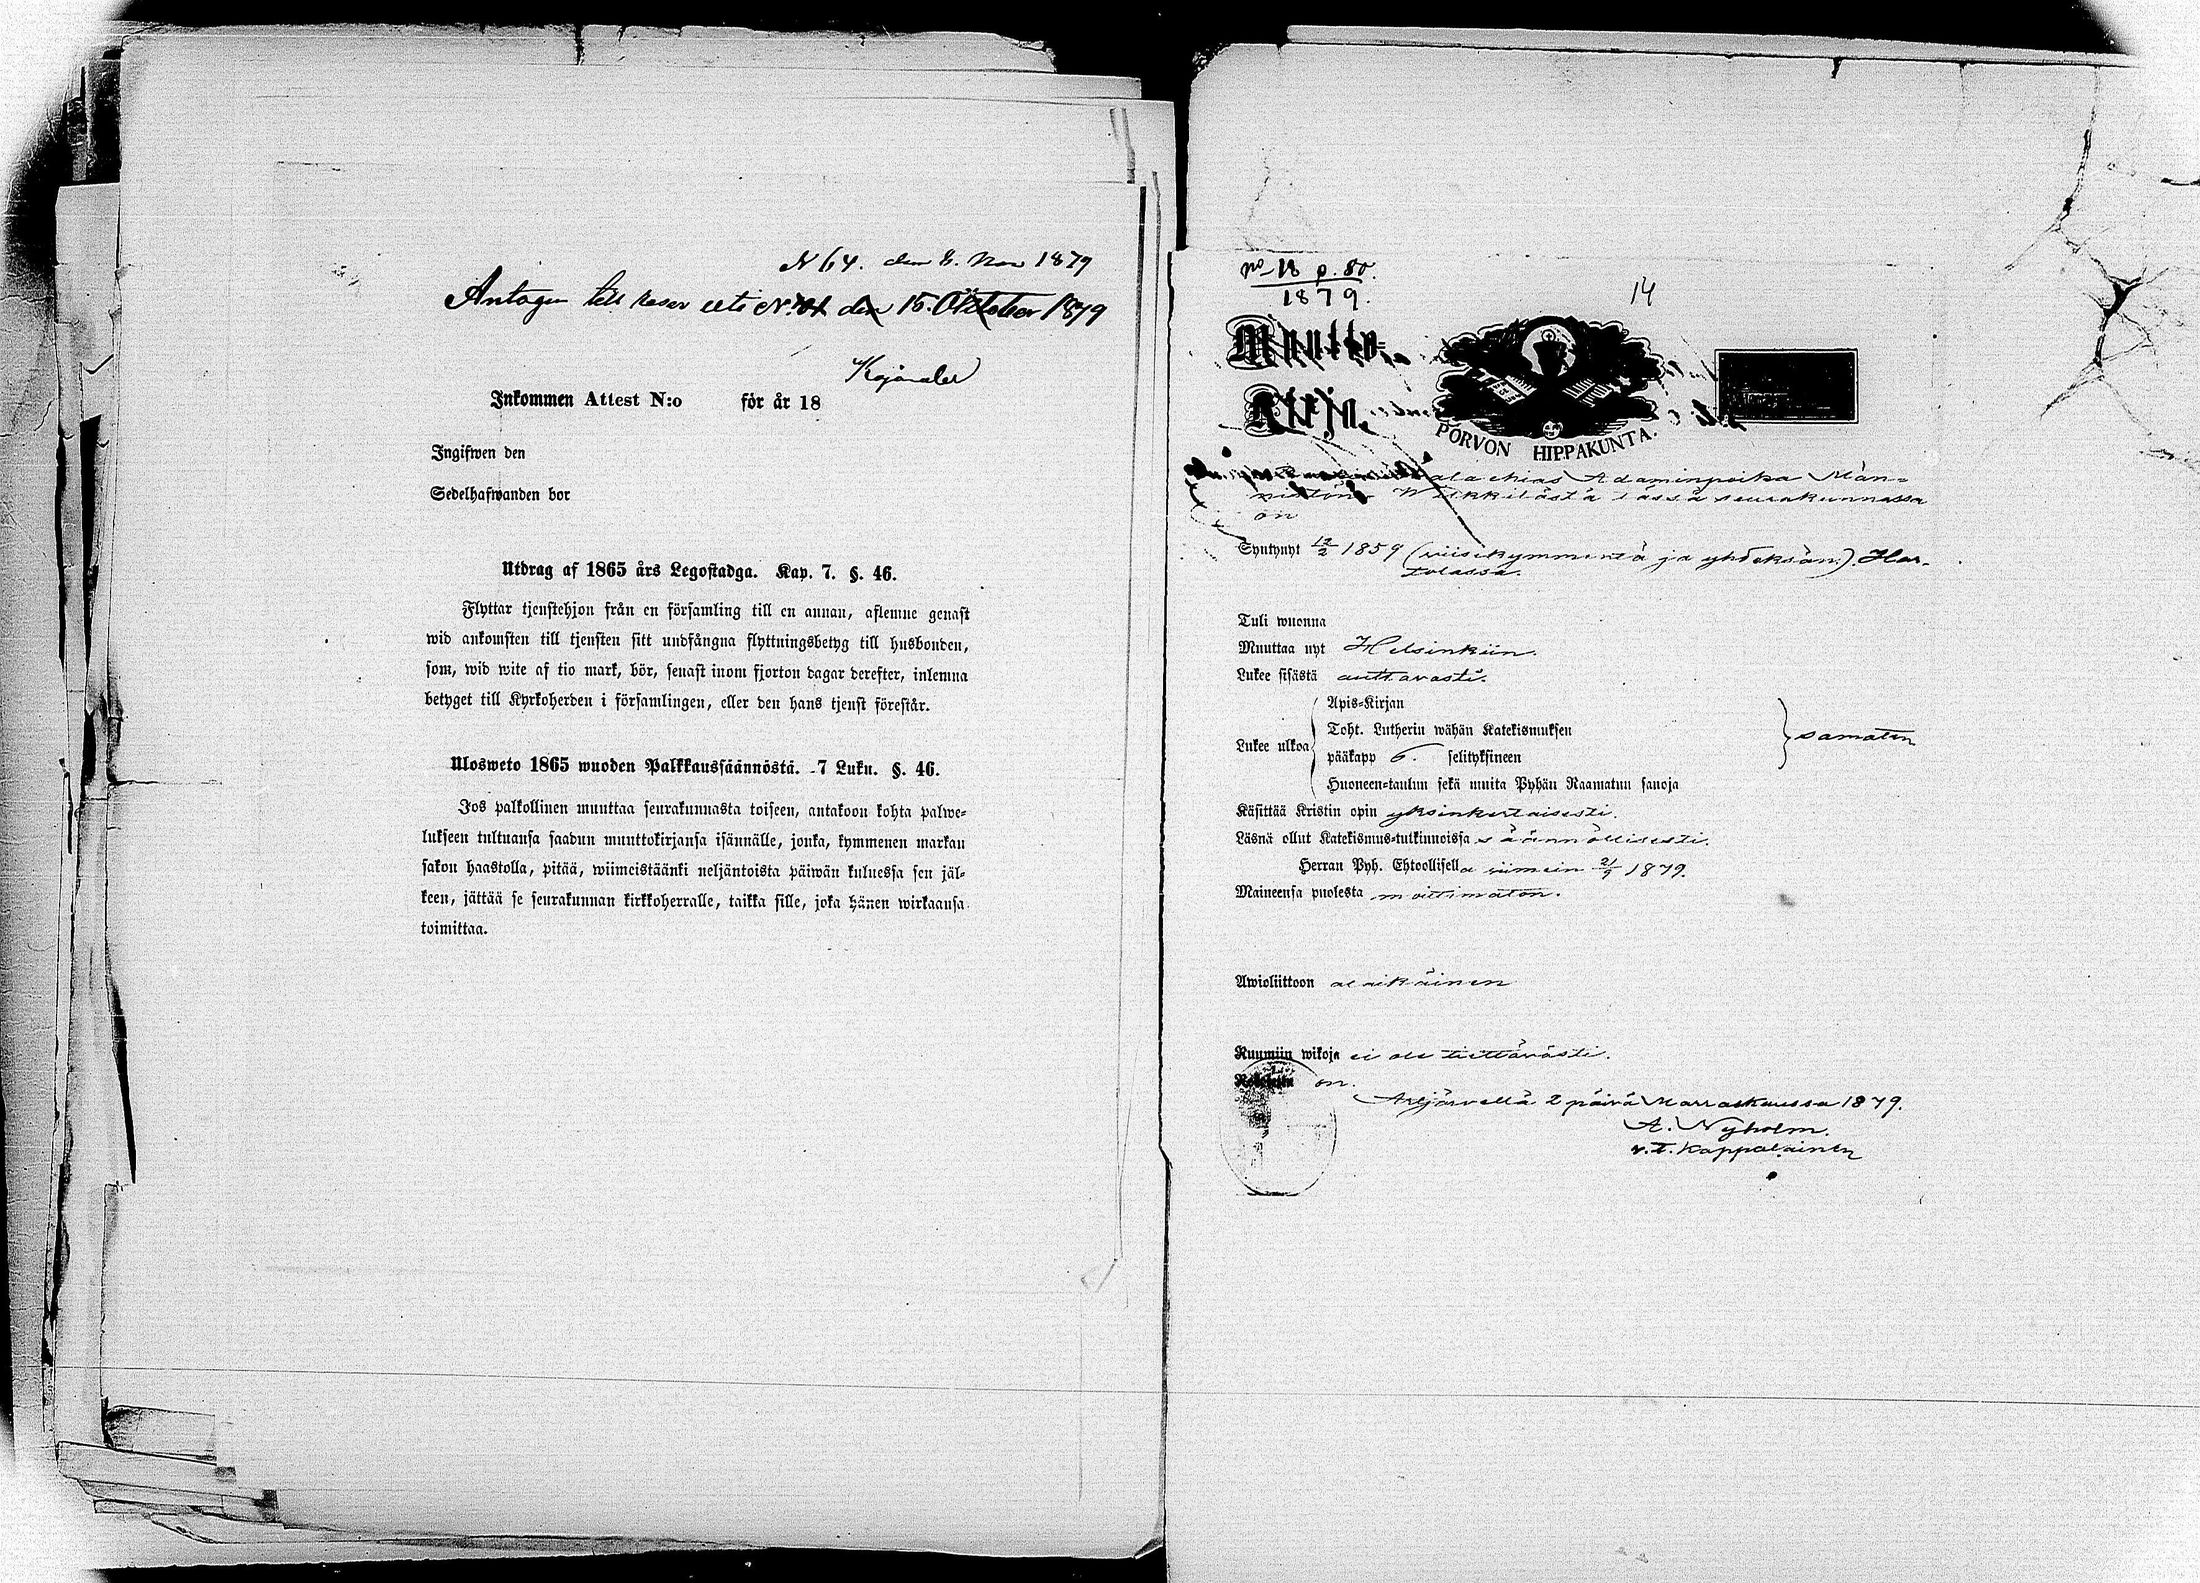 N 64. den 8. Nov 1879
Antagen till den 15. October 1879
Inkommen Attest N:o för år 18
Ingifwen den
Sedelhafwanden bor
Utdrag af 1865 års Legostadga. Kap. 7. §. 46.
Flyttar tjenstehjon från en församling till en annan, aflemne genast
wid ankomsten till tjensten sitt undfångna flyttningsbetyg till husbonden,
som, wid wite af tio mark, bör, senast inom fjorton dagar derefter, inlemna
betyget till Kyrkoherden i församlingen, eller den hans tjenst förestår.
Ulosweto 1865 wuoden Palkkaussäännöstä. 7 Luku. §. 46.
Jos palkollinen muuttaa seurakunnasta toiseen, antakoon kohta palwe-
lukseen tultuansa saadun muuttokirjansa isännälle, jonka, kymmenen markan
sakon haastolla, pitää, wiimeistäänki neljäntoista päiwän kuluessa sen jäl-
keen, jättää se seurakunnan kirkkoherralle, taikka sille, joka hänen wirkaansa
toimittaa.
no 18 p. 80.
1879.
14
Muutto-
Kirja.
PORVON HIPPAKUNTA.
Adaminpoika Män-
tässä seurakunnassa
on
Syntynyt 12/2 1859 (viisikymmentä ja yhdeksän). Har-
tolassa.
Tuli wuonna
Muuttaa nyt Helsinkiin.
Lukee sisästä auttavasti.
Lukee ulkoa
Apis-Kirjan
Toht. Lutherin wähän Katekismuksen
pääkapp 6. selityksineen
Huoneen-taulun sekä muita Pyhän Raamatun sanoja
samaten
Käsittää Kristin opin yksinkertaisesti.
Läsnä ollut Katekismus-tutkinnoissa säännöllisesti.
Herran Pyh. Ehtoollisella viimein 21/9 1879.
Maineensa puolesta moittimaton.
Awioliittoon alaikäinen
Ruumiin wikoja ei ole tiettävästi.
Rokotettu on.
Artjärvellä 2 päivä Marraskuussa 1879.
A. Nyholm.
v.t. Kappalainen